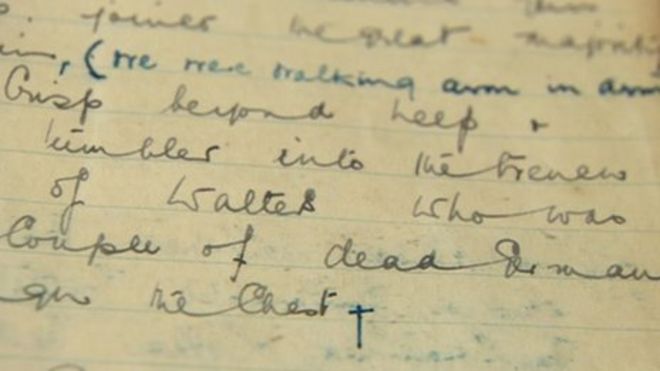 joined the great majority
(we were walking arm in arm
Crisp beyond help &
tumbled into the trench
of Walters who was
Couple of dead German
the Chest †